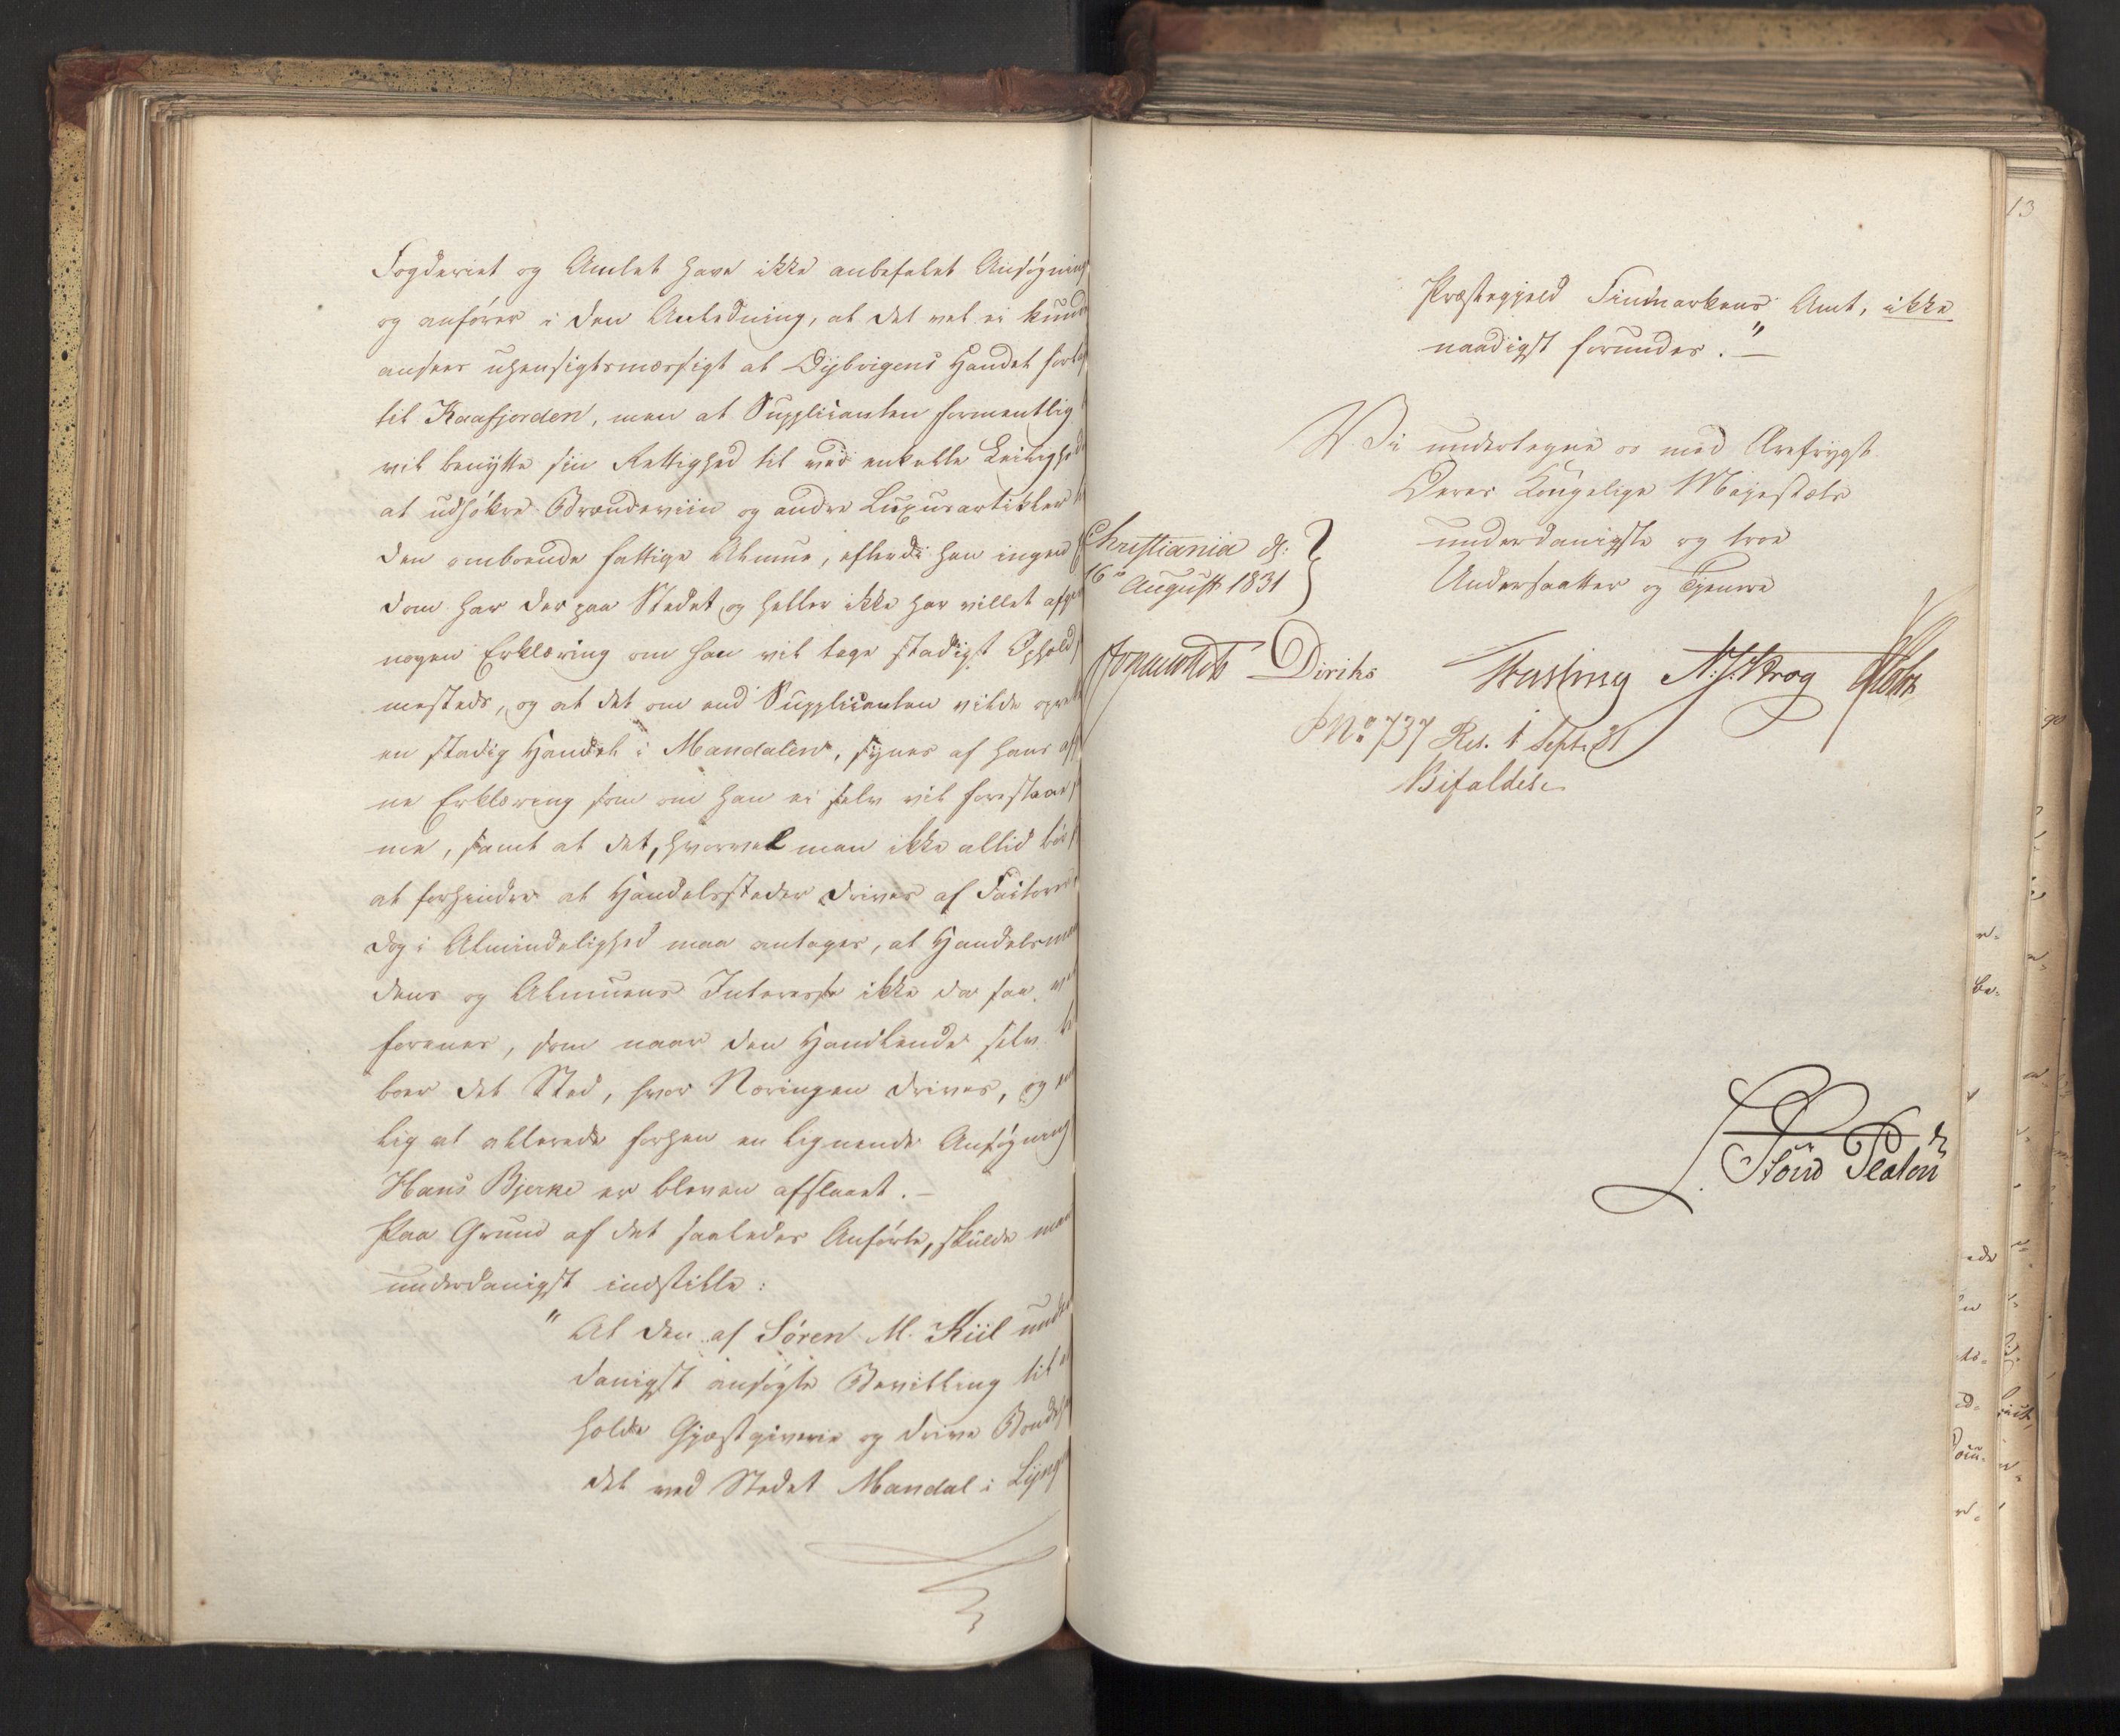 Fogderiet og Amtet have ikke anbefalet Ansøgning
og anfører i den Anledning, at det vel ei kunde
ansees uhensigtsmæssigt at Dybvigens Handel
til Kaafjorden, men at Supplicanten formentlig
vil benytte sin Rettighed til ved enkelte Leilighed
at udhøkre Brændeviin og andre Luxusartikler
den omboende fattige Almue, efterdi han ingen
dom har der paa Stedet, og heller ikke har villet
nogen Erklæring om han vil tage stadigt Ophold
mesteds, og at det om end Supplicanten vilde
en stadig Handel i Mandalen, synes af hans
ne Erklæring som om han ei selv vil forestaae
me, samt at det, hvorvel man ikke altid bør
at forhindre at Handelssteder drives af Factorer
dog i Almindelighed maa antages, at Handelsman
dens og Almuens Interesse ikke da saa
forenes, som naar den Handlende selv be
boer det Sted, hvor Næringen drives, og en
lig at allerede forhen en lignende Ansøgning
Hans Bjerke er bleven afslaaet. –
Paa Grund af det saaledes Anførte, skulde man
underdanigst indstille:
" At den af Søren M. Kiil under
danigst ansøgte Bevilling til
holde Gjæstgiverie og drive
del ved Stedet Mandal i Lyng
Præstegjeld Finmarkens Amt, ikke
naadigst forundes." –
Vi undertegne os med Ærefrygt
Deres Kongelige Majestæts
underdanigste og troe
Undersaatter og Tjenere
Christiania d:
16de August 1831
Diriks
N. J. Krog
No 737 Res. 1 Sept. 31
Bifaldes.
13